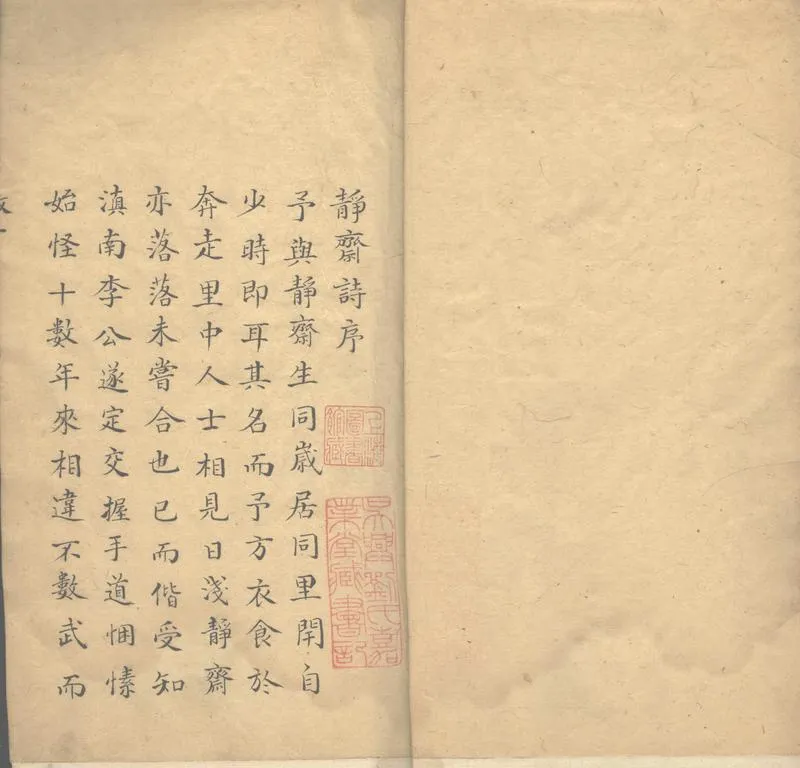 靜齋詩序
予與靜齋生同歲居同里閈自
少時即耳其名而予方衣食於
奔走里中人士相見日淺靜齋
亦落落未嘗合也已而偕受知
滇南李公遂定交握手道悃愫
始怪十數年來相違不數武而
吳興劉氏嘉
業堂藏書記